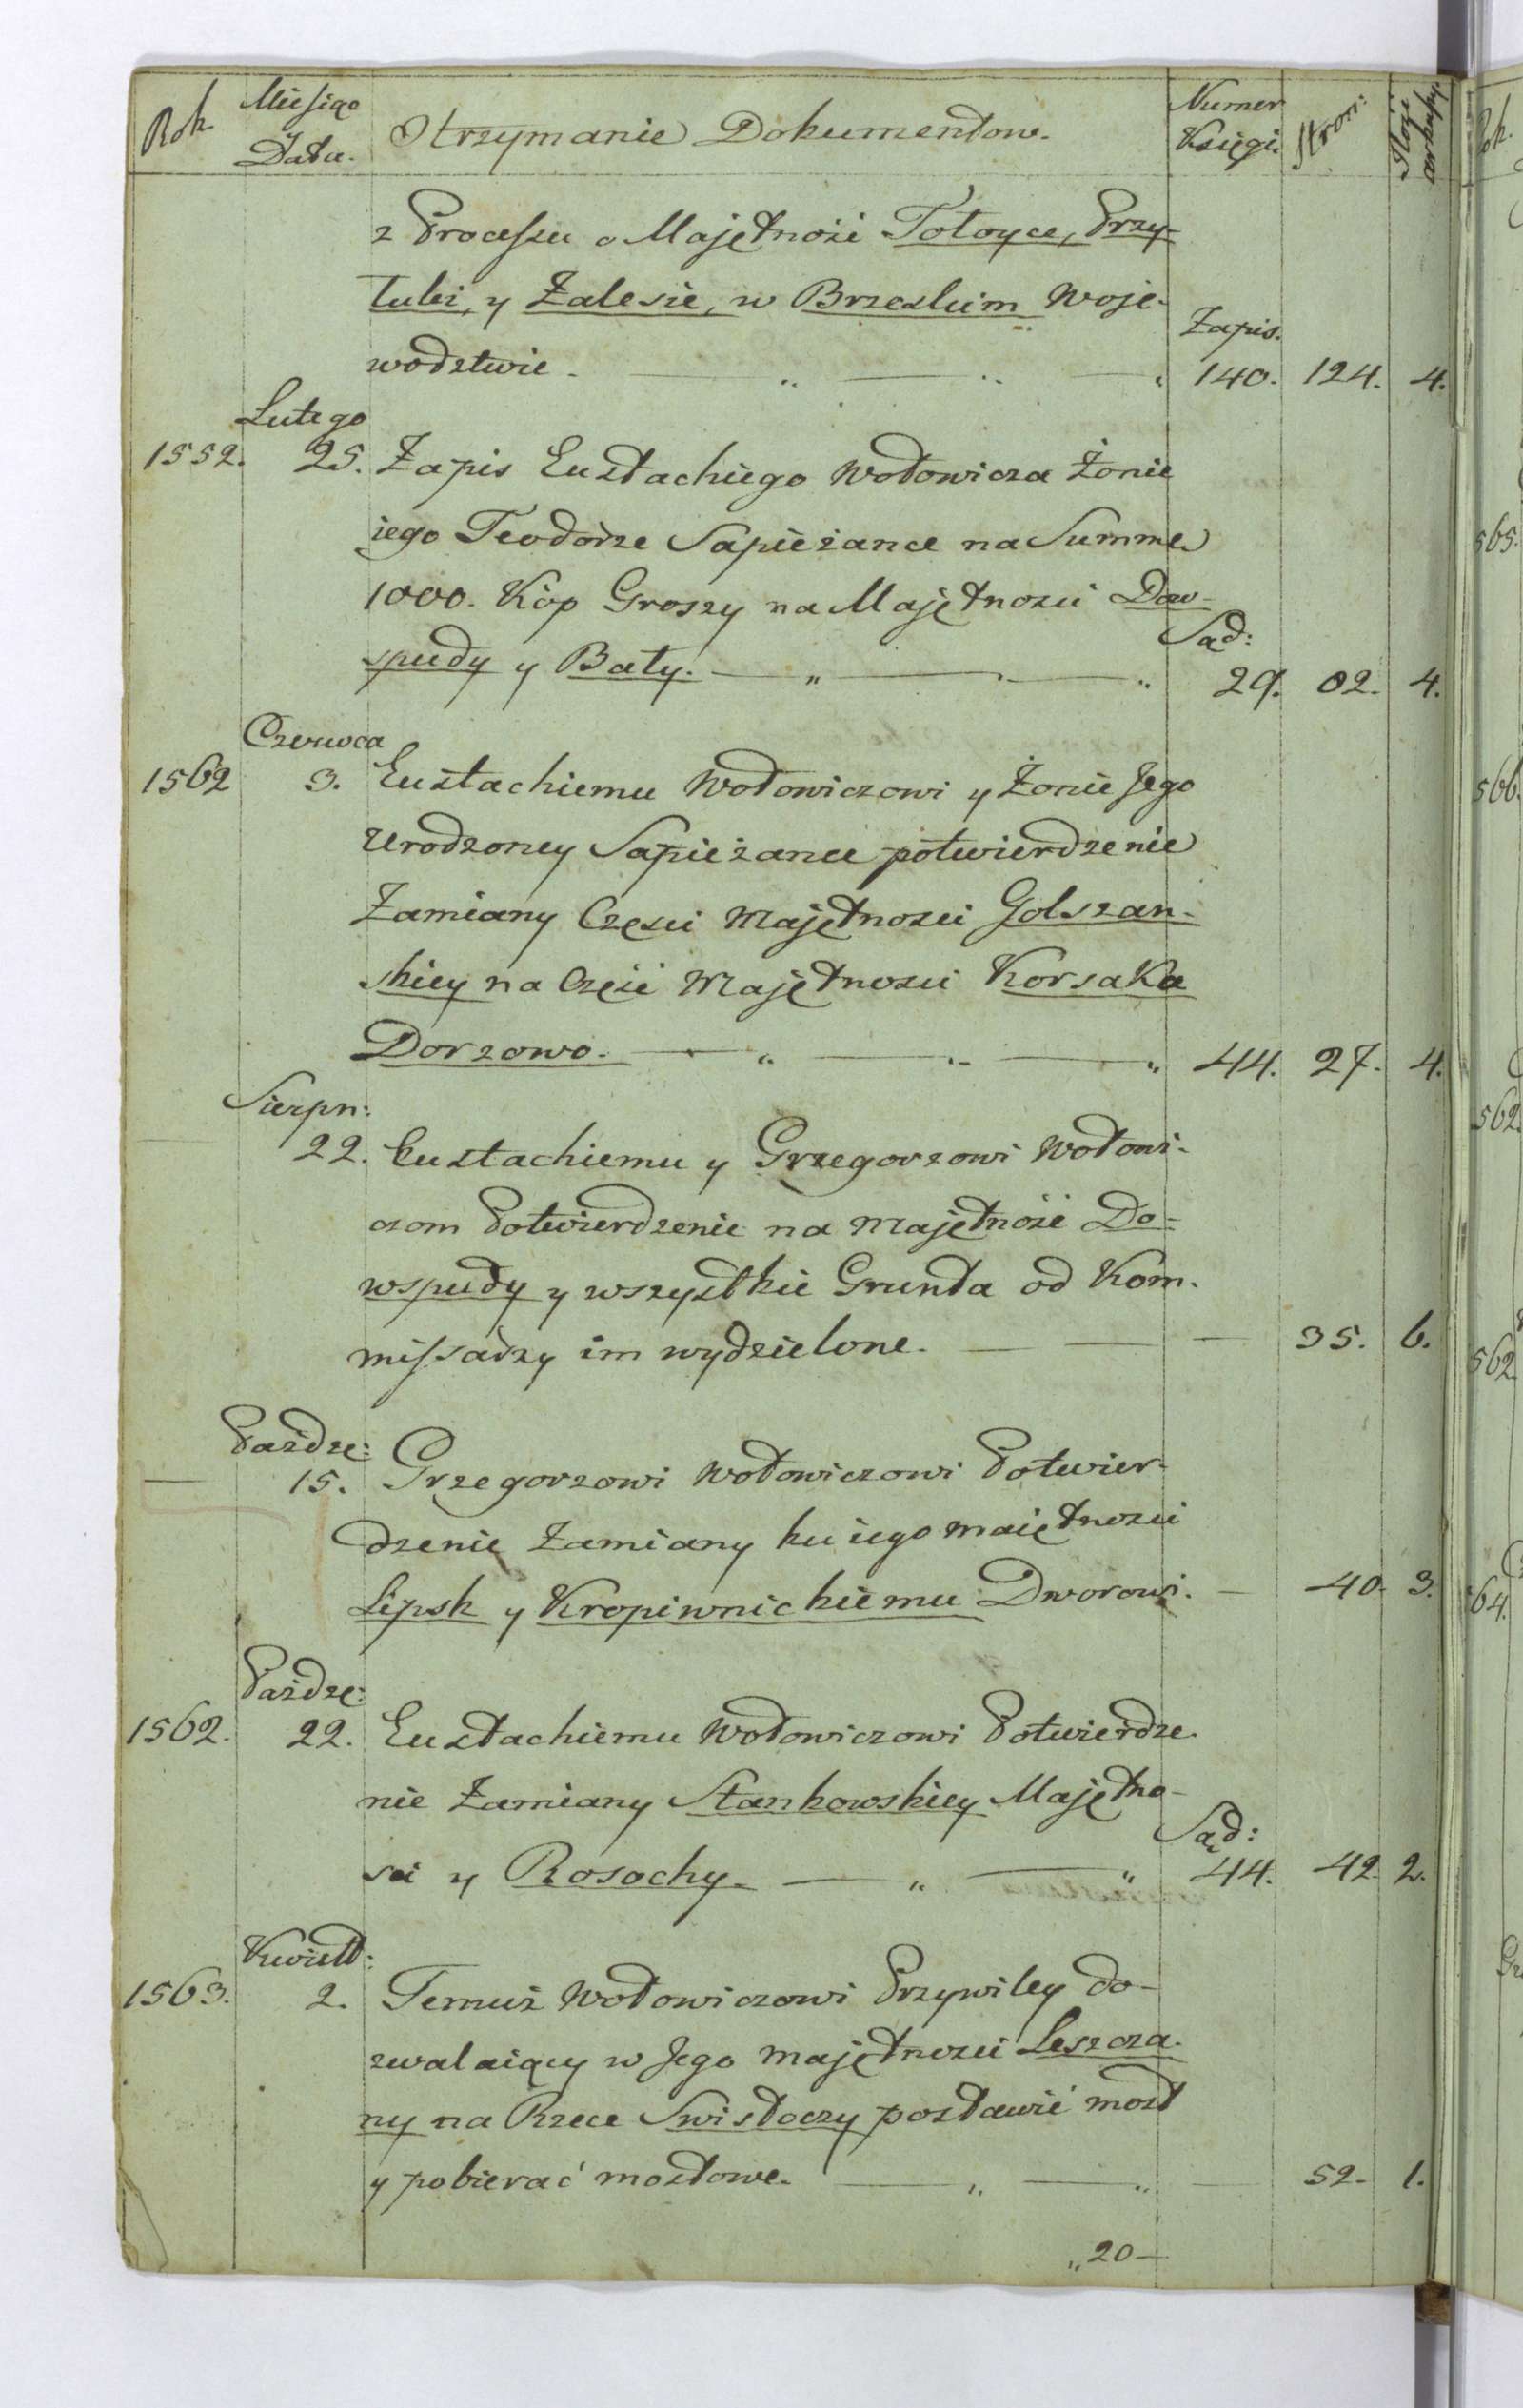 Rok Miesiąc Data. Otrzymanie Dokumentow. Numer Księgi. Stron: Ilość
z Processu o Majętność Tołoyce, Przy=
łuki, y Zalesie, w Brzeskim Woje-
wodztwie. Zapis. 140. 124. 4.
Lutego
1552. 25. Zapis Eustachiego Wołowicza Żonie
jego Teodorze Sapieżance na Summe
1000. Kóp Groszy na Majętnosci Dow-
spudy y Bały. Sąd: 29. 82. 4.
Czerwca
1562 3. Eustachiemu Wołowiczowi y Żonie Jego
Urodzoney Sapieżance potwierdzenie
Zamiany Częsci Majętnosci Golszan-
skiey na Część Majętnosci Korsaka
Dorzowo. 44. 27. 4.
Sierpn:
22. Eustachiemu y Grzegorzowi Wołowi-
czom Potwierdzenie na Majętność Do=
wspudy y wszystkie Grunta od Kom-
missarzy im wydzielone. 35. 6.
Paźdze:
15. Grzegorzowi Wołowiczowi Potwier-
dzenie Zamiany ku iego maiętnosci
Lipsk y Kropiwnickiemu Dworowi. 40. 3.
Paźdze:
1562. 22. Eustachiemu Wołowiczowi Potwierdze-
nie Zamiany Stankowskiey Majętno-
sci y Rosochy. Sąd: 44. 42. 2.
Kwiet:
1563. 2. Temuż Wołowiczowi Przywiley do-
zwalaiący w Jego majętnosci Leszcza-
ny na Rzece Swisłoczy postawić most
y pobierać mostowe. 52. 1.
20